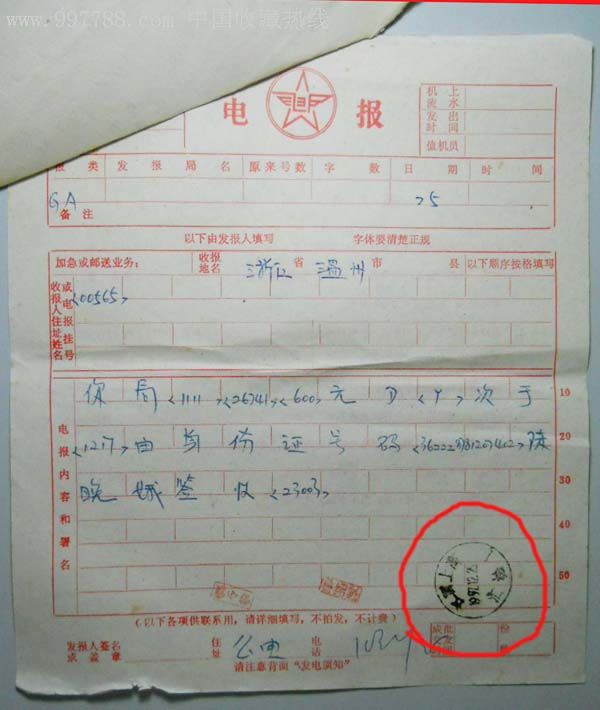 www.997788.com 中国收藏热线
电 报
机上
流水
发出
时间
值机员
报 类 发 报 局 名 原来号数 字 数 日 期 时 间
GA 25
备注
以下由发报人填写 字体要清楚正规
加急或邮送业务: 收报地名 浙江 省 温州 市 县 以下顺序按格填写
收报人住址姓名 或电报挂号
<00565>
你局<1111><26741><600>元 <1>次于 10
<1217>由身份证号码 陕 20
晚娥签收<2303> 30
40
50
电报内容和署名
(以下各项供联系用,请详细填写,不拍发,不计费)
发报人签名或盖章 住址 公电 电话
请注意背面“发电须知”